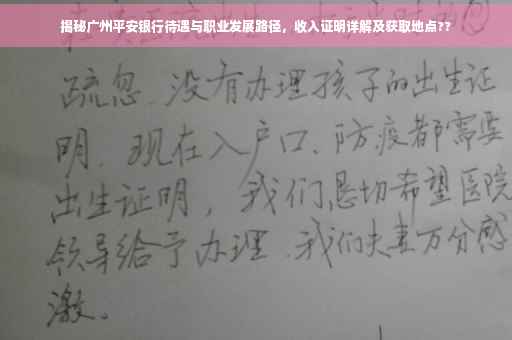 揭秘广州平安银行待遇与职业发展路径，收入证明详解及获取地点??
疏忽、没有办理孩子的出生证
明、现在入户口、防疫都需要
出生证明，我们恳切希望医院
领导给予办理、我们夫妻万分感
激。